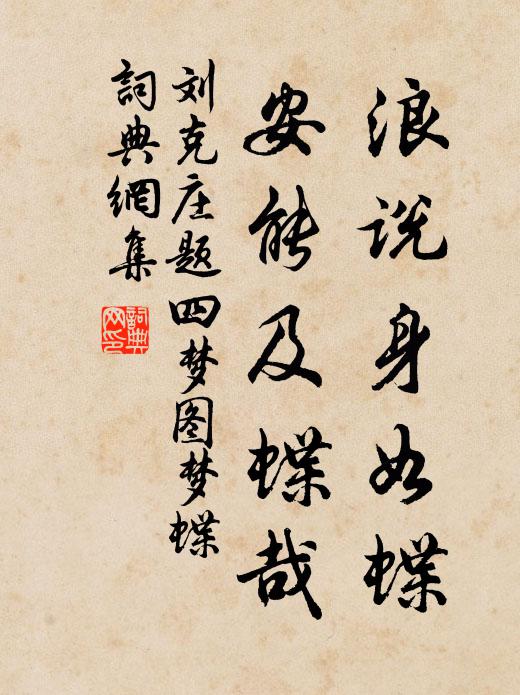 浪说身如蝶
安能及蝶哉
刘克庄题四梦图梦蝶
詞典網集
詞典网印